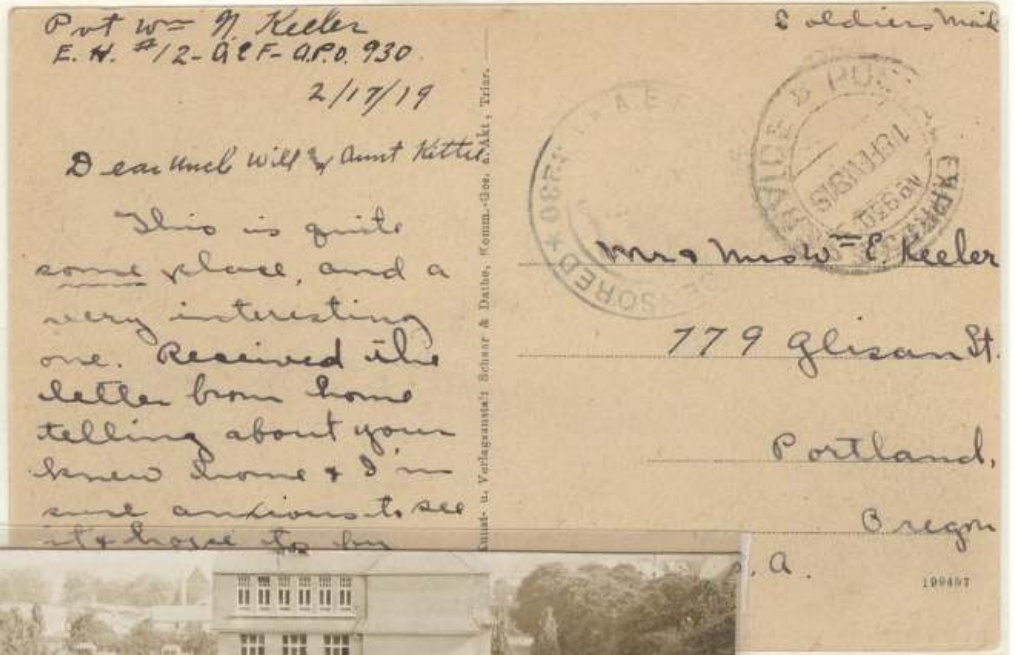 Pvt Wm N. Keeler
E. H. #12 - A E F - A.P.O. 930
2/17/19
Dear Uncle Will & Aunt Kittie
This is quite
some place, and a
very interesting
one. Received the
letter from home
telling about your
knew home & I'm
sure anxious to see
it & hope to
Kunst- u. Verlagsanstalt Schaar & Dathe, Komm.-Ges. a. Akt., Trier.
Soldiers Mail
A.E.F.
CENSORED
SERVICE
No 930
Mr & Mrs Wm E. Keeler
779 Glisan St.
Portland,
Oregon
. A.
199497